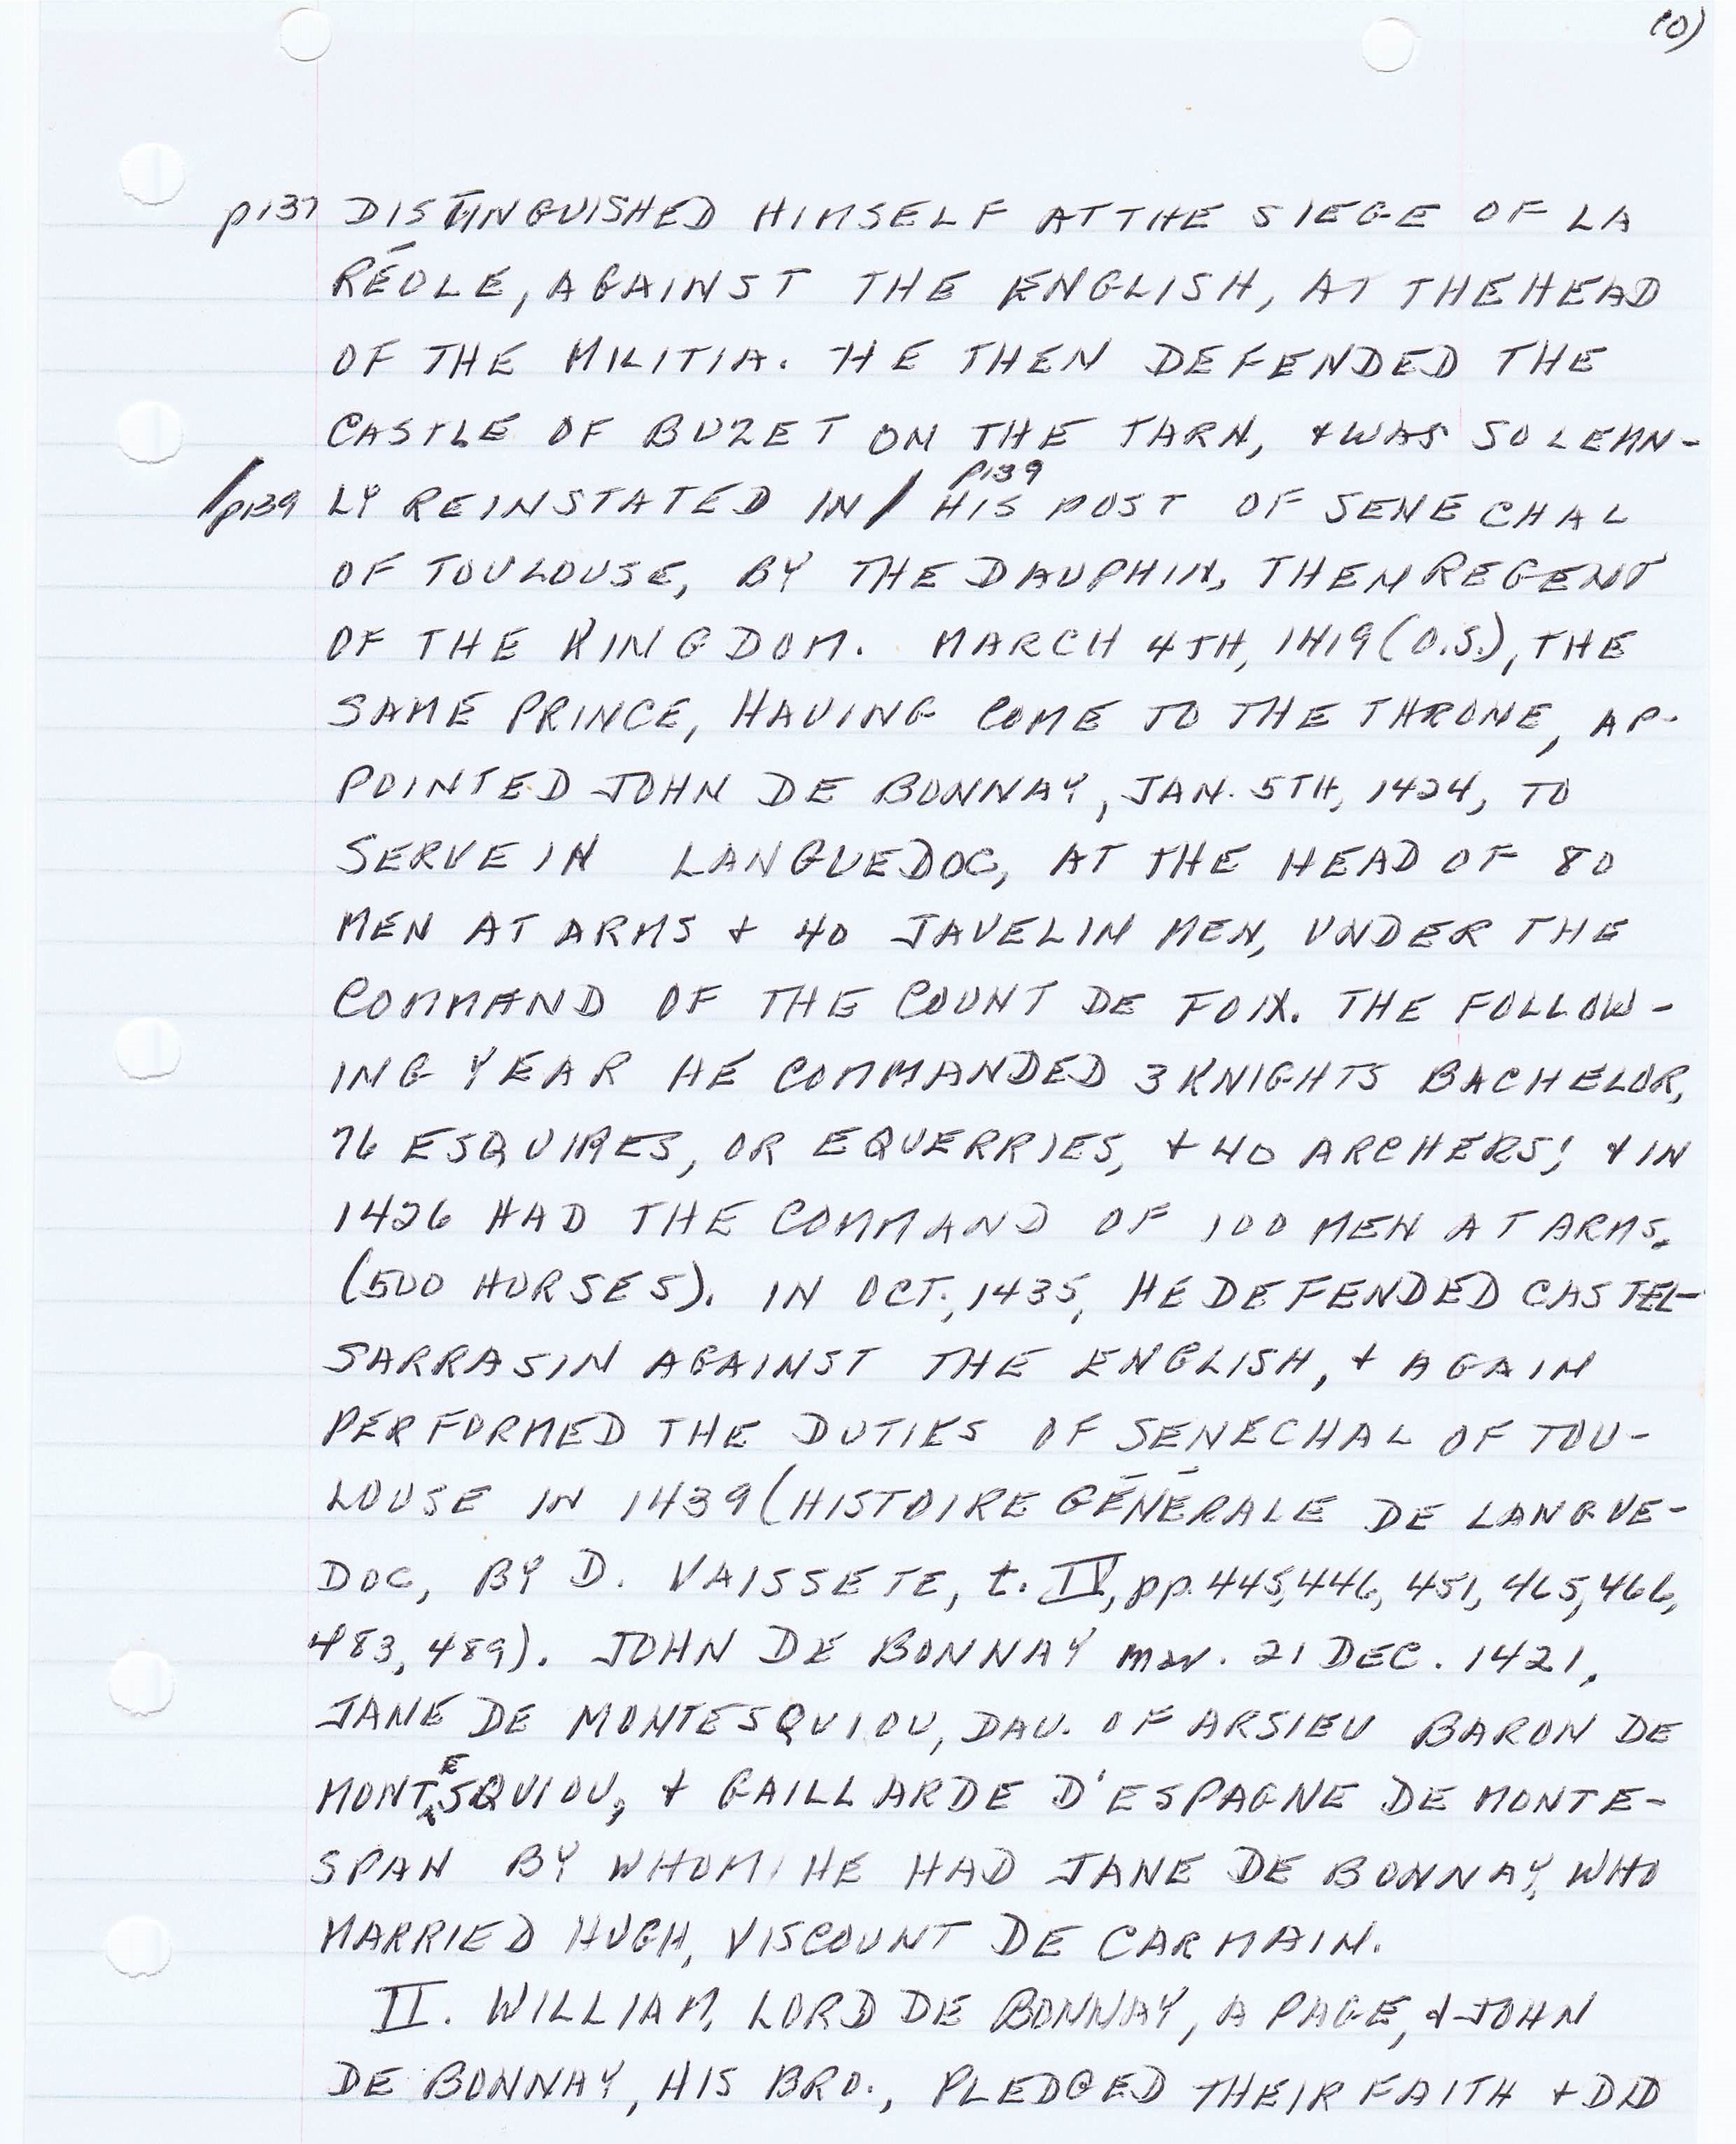 10)
p137 DISTINGUISHED HIMSELF AT THE SIEGE OF LA
RÉOLE, AGAINST THE ENGLISH, AT THE HEAD
OF THE MILITIA. HE THEN DEFENDED THE
CASTLE OF BUZET ON THE TARN, & WAS SOLEMN-
p139
/p139 LY REINSTATED IN / HIS POST OF SENECHAL
OF TOULOUSE, BY THE DAUPHIN, THEN REGENT
OF THE KINGDOM. MARCH 4TH, 1419 (O.S.), THE
SAME PRINCE, HAVING COME TO THE THRONE, AP-
POINTED JOHN DE BONNAY, JAN. 5TH, 1424, TO
SERVE IN LANGUEDOC, AT THE HEAD OF 80
MEN AT ARMS & 40 JAVELIN MEN, UNDER THE
COMMAND OF THE COUNT DE FOIX. THE FOLLOW-
ING YEAR HE COMMANDED 3 KNIGHTS BACHELOR,
76 ESQUIRES, OR EQUERRIES, & 40 ARCHERS; & IN
1426 HAD THE COMMAND OF 100 MEN AT ARMS.
(500 HORSES). IN OCT., 1435, HE DEFENDED CASTEL-
SARRASIN AGAINST THE ENGLISH, & AGAIN
PERFORMED THE DUTIES OF SENECHAL OF TOU-
LOUSE IN 1439 (HISTOIRE GÉNÉRALE DE LANGUE-
DOC, BY D. VAISSETE, t. IV, pp. 445, 446, 451, 465, 466,
483, 489). JOHN DE BONNAY mar. 21 DEC. 1421,
JANE DE MONTESQUIOU, DAU. OF ARSIEU BARON DE
MONTESQUIOU, & GAILLARDE D'ESPAGNE DE MONTE-
SPAN BY WHOM HE HAD JANE DE BONNAY, WHO
MARRIED HUGH, VISCOUNT DE CARMAIN.
II. WILLIAM, LORD DE BONNAY, A PAGE, & JOHN
DE BONNAY, HIS BRO., PLEDGED THEIR FAITH & DID